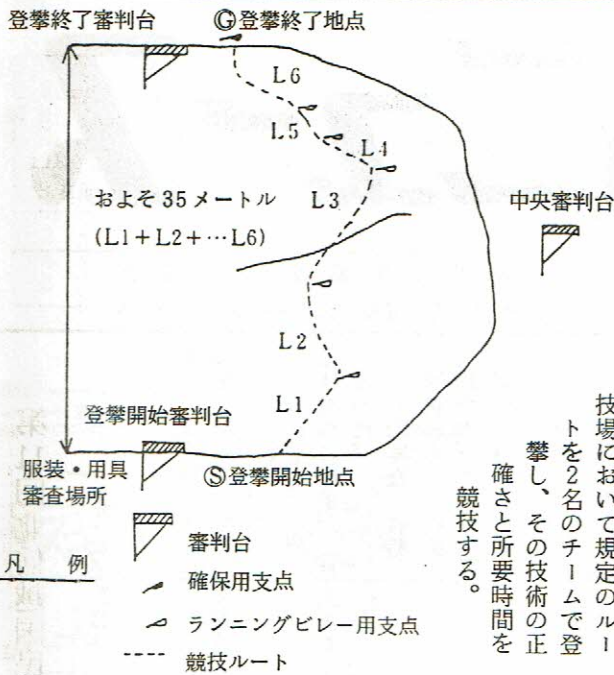 登攀終了審判台
Ⓖ登攀終了地点
L6
L5
L4
およそ35メートル
L3
(L1+L2+…L6)
中央審判台
L2
L1
登攀開始審判台
服装・用具
審査場所
Ⓢ登攀開始地点
凡 例
審判台
確保用支点
ランニングビレー用支点
競技ルート
技場において規定のルー
トを2名のチームで登
攀し、その技術の正
確さと所要時間を
競技する。